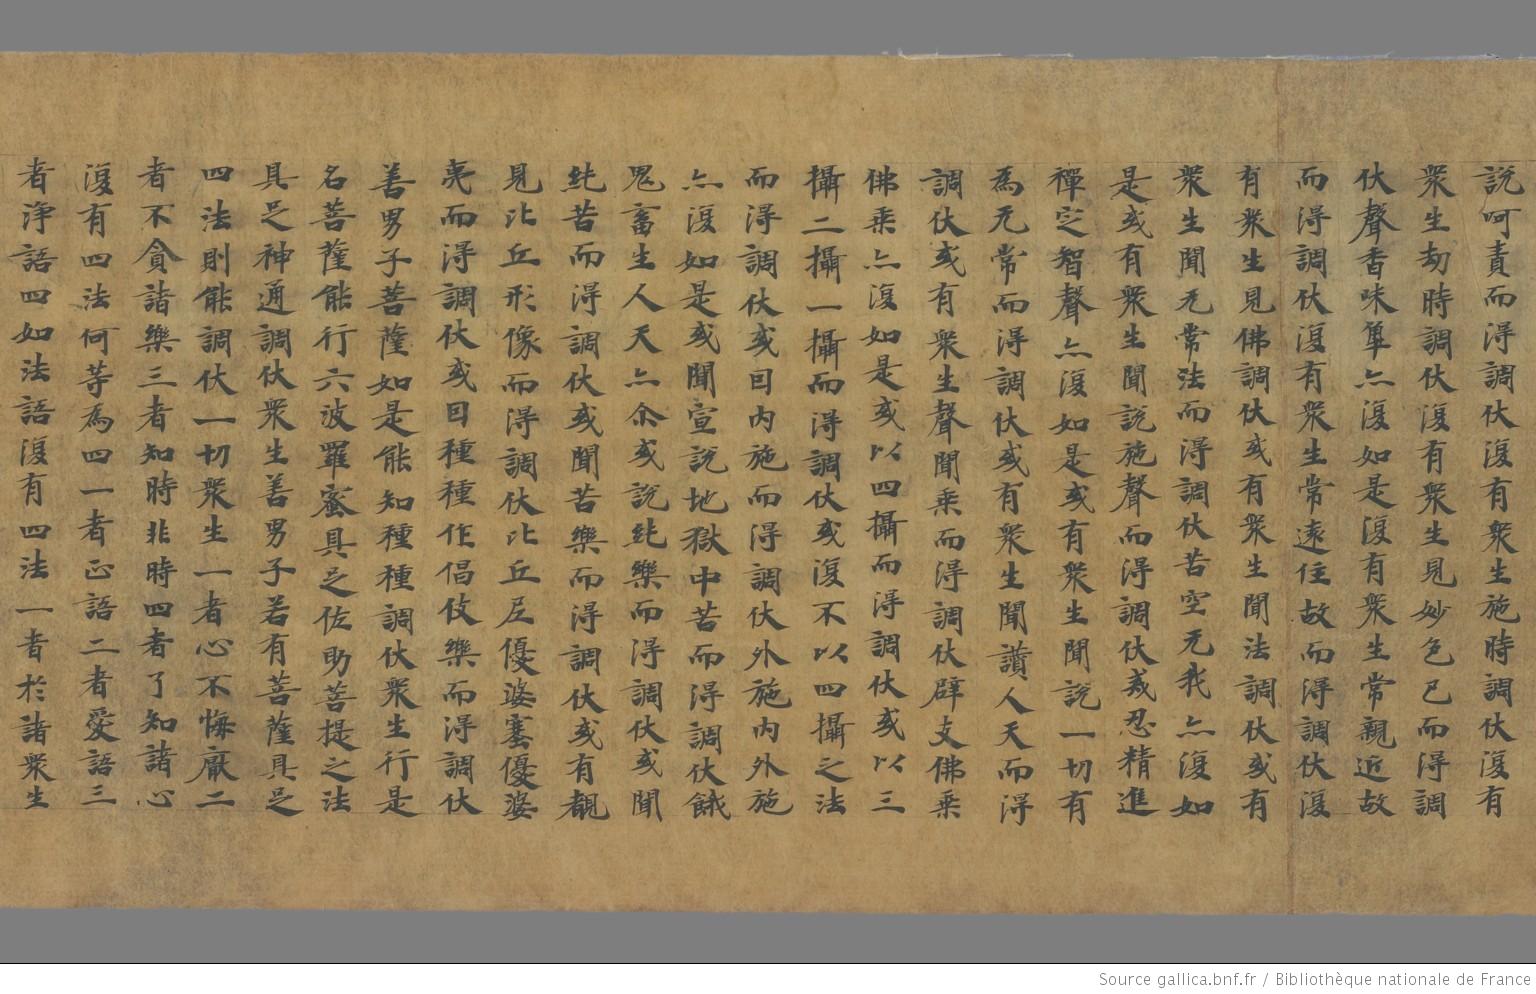 說呵責而得調伏復有衆生施時調伏復有
衆生劫時調伏復有衆生見妙色已而得調
伏聲香味𧢻亦復如是復有衆生常親近故
而得調伏復有衆生常遠住故而得調伏復
有衆生見佛調伏或有衆生聞法調伏或有
衆生聞无常法而得調伏苦空无我亦復如
是或有衆生聞說施聲而得調伏戒忍精進
禪定智聲亦復如是或有衆生聞說一切有
為无常而得調伏或有衆生聞讚人天而得
調伏或有衆生聲聞乘而得調伏辟支佛乘
佛乘亦復如是或以四攝而得調伏或以三
攝二攝一攝而得調伏或復不以四攝之法
而得調伏或因内施而得調伏外施内外施
亦復如是或聞宣說地獄中苦而得調伏餓
鬼畜生人天亦尒或說純樂而得調伏或聞
純苦而得調伏或聞苦樂而得調伏或有覩
見比丘形像而得調伏比丘尼優婆塞優婆
夷而得調伏或因種種作倡伎樂而得調伏
善男子菩薩如是能知種種調伏衆生行是
名菩薩能行六波羅蜜具足佐助菩提之法
具足神通調伏衆生善男子若有菩薩具足
四法則能調伏一切衆生一者心不悔厭二
者不貪諸樂三者知時非時四者了知諸心
復有四法何等為四一者正語二者愛語三
者淨語四如法語復有四法一者於諸衆生
Source gallica.bnf.fr / Bibliothèque nationale de France